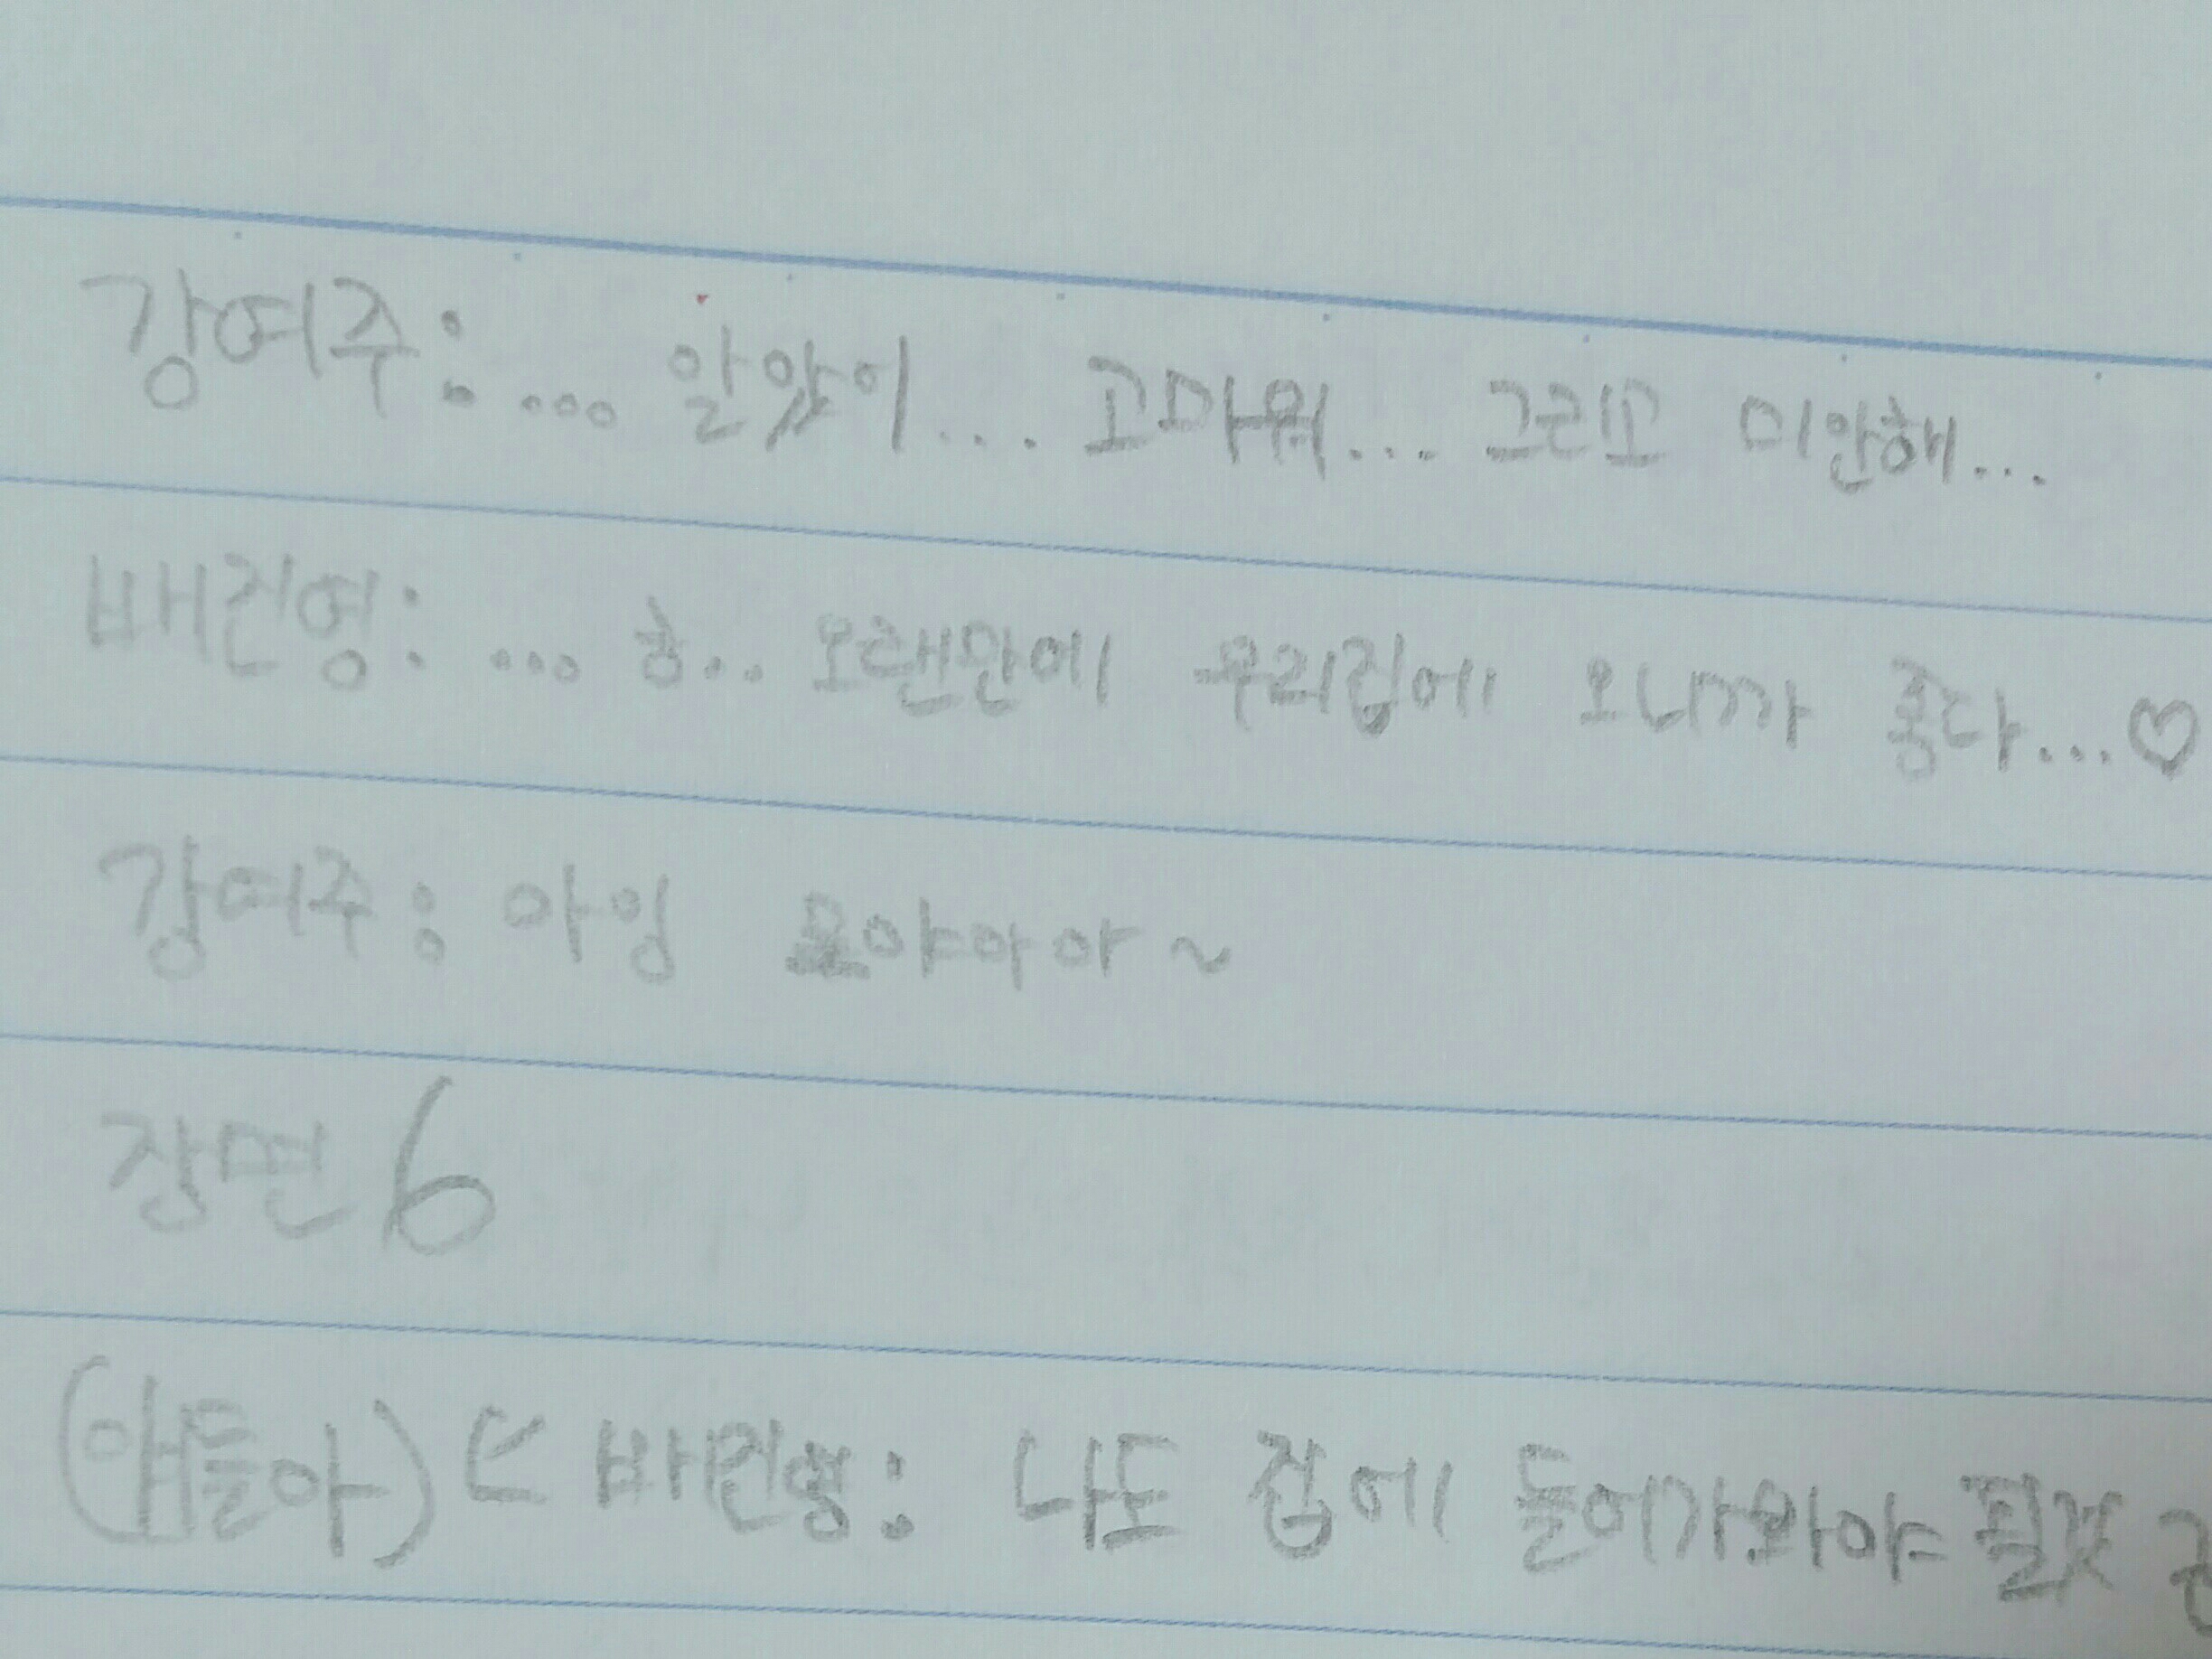 강여주: ... 알았어... 고마워... 그리고 미안해...
배진영: ... 흐.. 오랜만에 우리집에 오니까 좋다...♡
강여주: 아잉 모야아아~
장면 6
(얘들아) 배진영: 나도 집에 들어가봐야